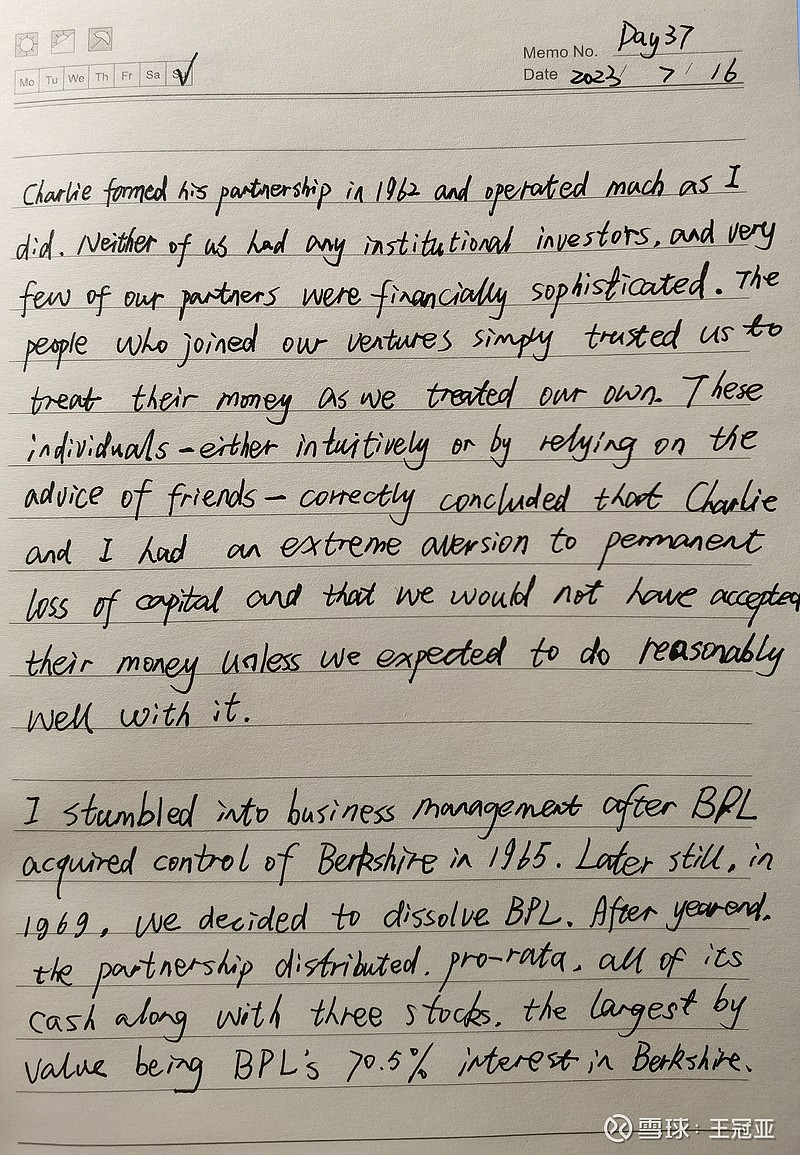 Memo No. Day 37
Mo Tu We Th Fr Sa Su
Date 2023 / 7 / 16
Charlie formed his partnership in 1962 and operated much as I
did. Neither of us had any institutional investors, and very
few of our partners were financially sophisticated. The
people who joined our ventures simply trusted us to
treat their money as we treated our own. These
individuals – either intuitively or by relying on the
advice of friends – correctly concluded that Charlie
and I had an extreme aversion to permanent
loss of capital and that we would not have accepted
their money unless we expected to do reasonably
well with it.
I stumbled into business management after BPL
acquired control of Berkshire in 1965. Later still, in
1969, we decided to dissolve BPL. After yearend,
the partnership distributed, pro-rata, all of its
cash along with three stocks, the largest by
value being BPL's 70.5% interest in Berkshire.
雪球：王冠亚